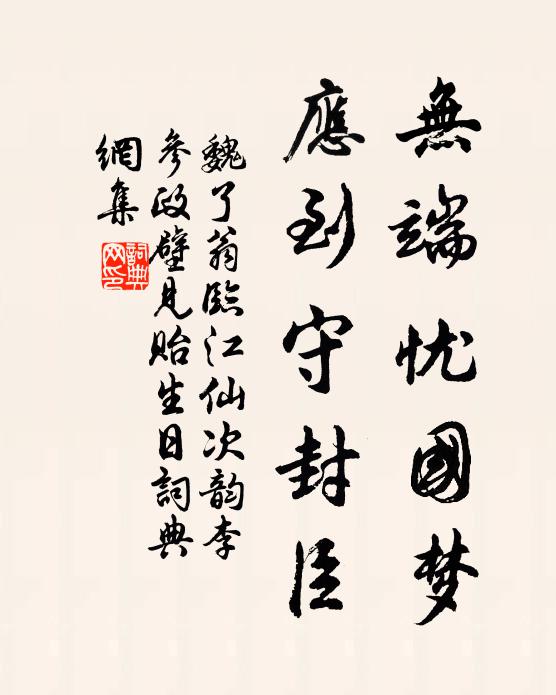 無端忧國梦
應到守封臣
魏了翁臨江仙次韵李
參政壁見貽生日詞典
網集
詞典
网印